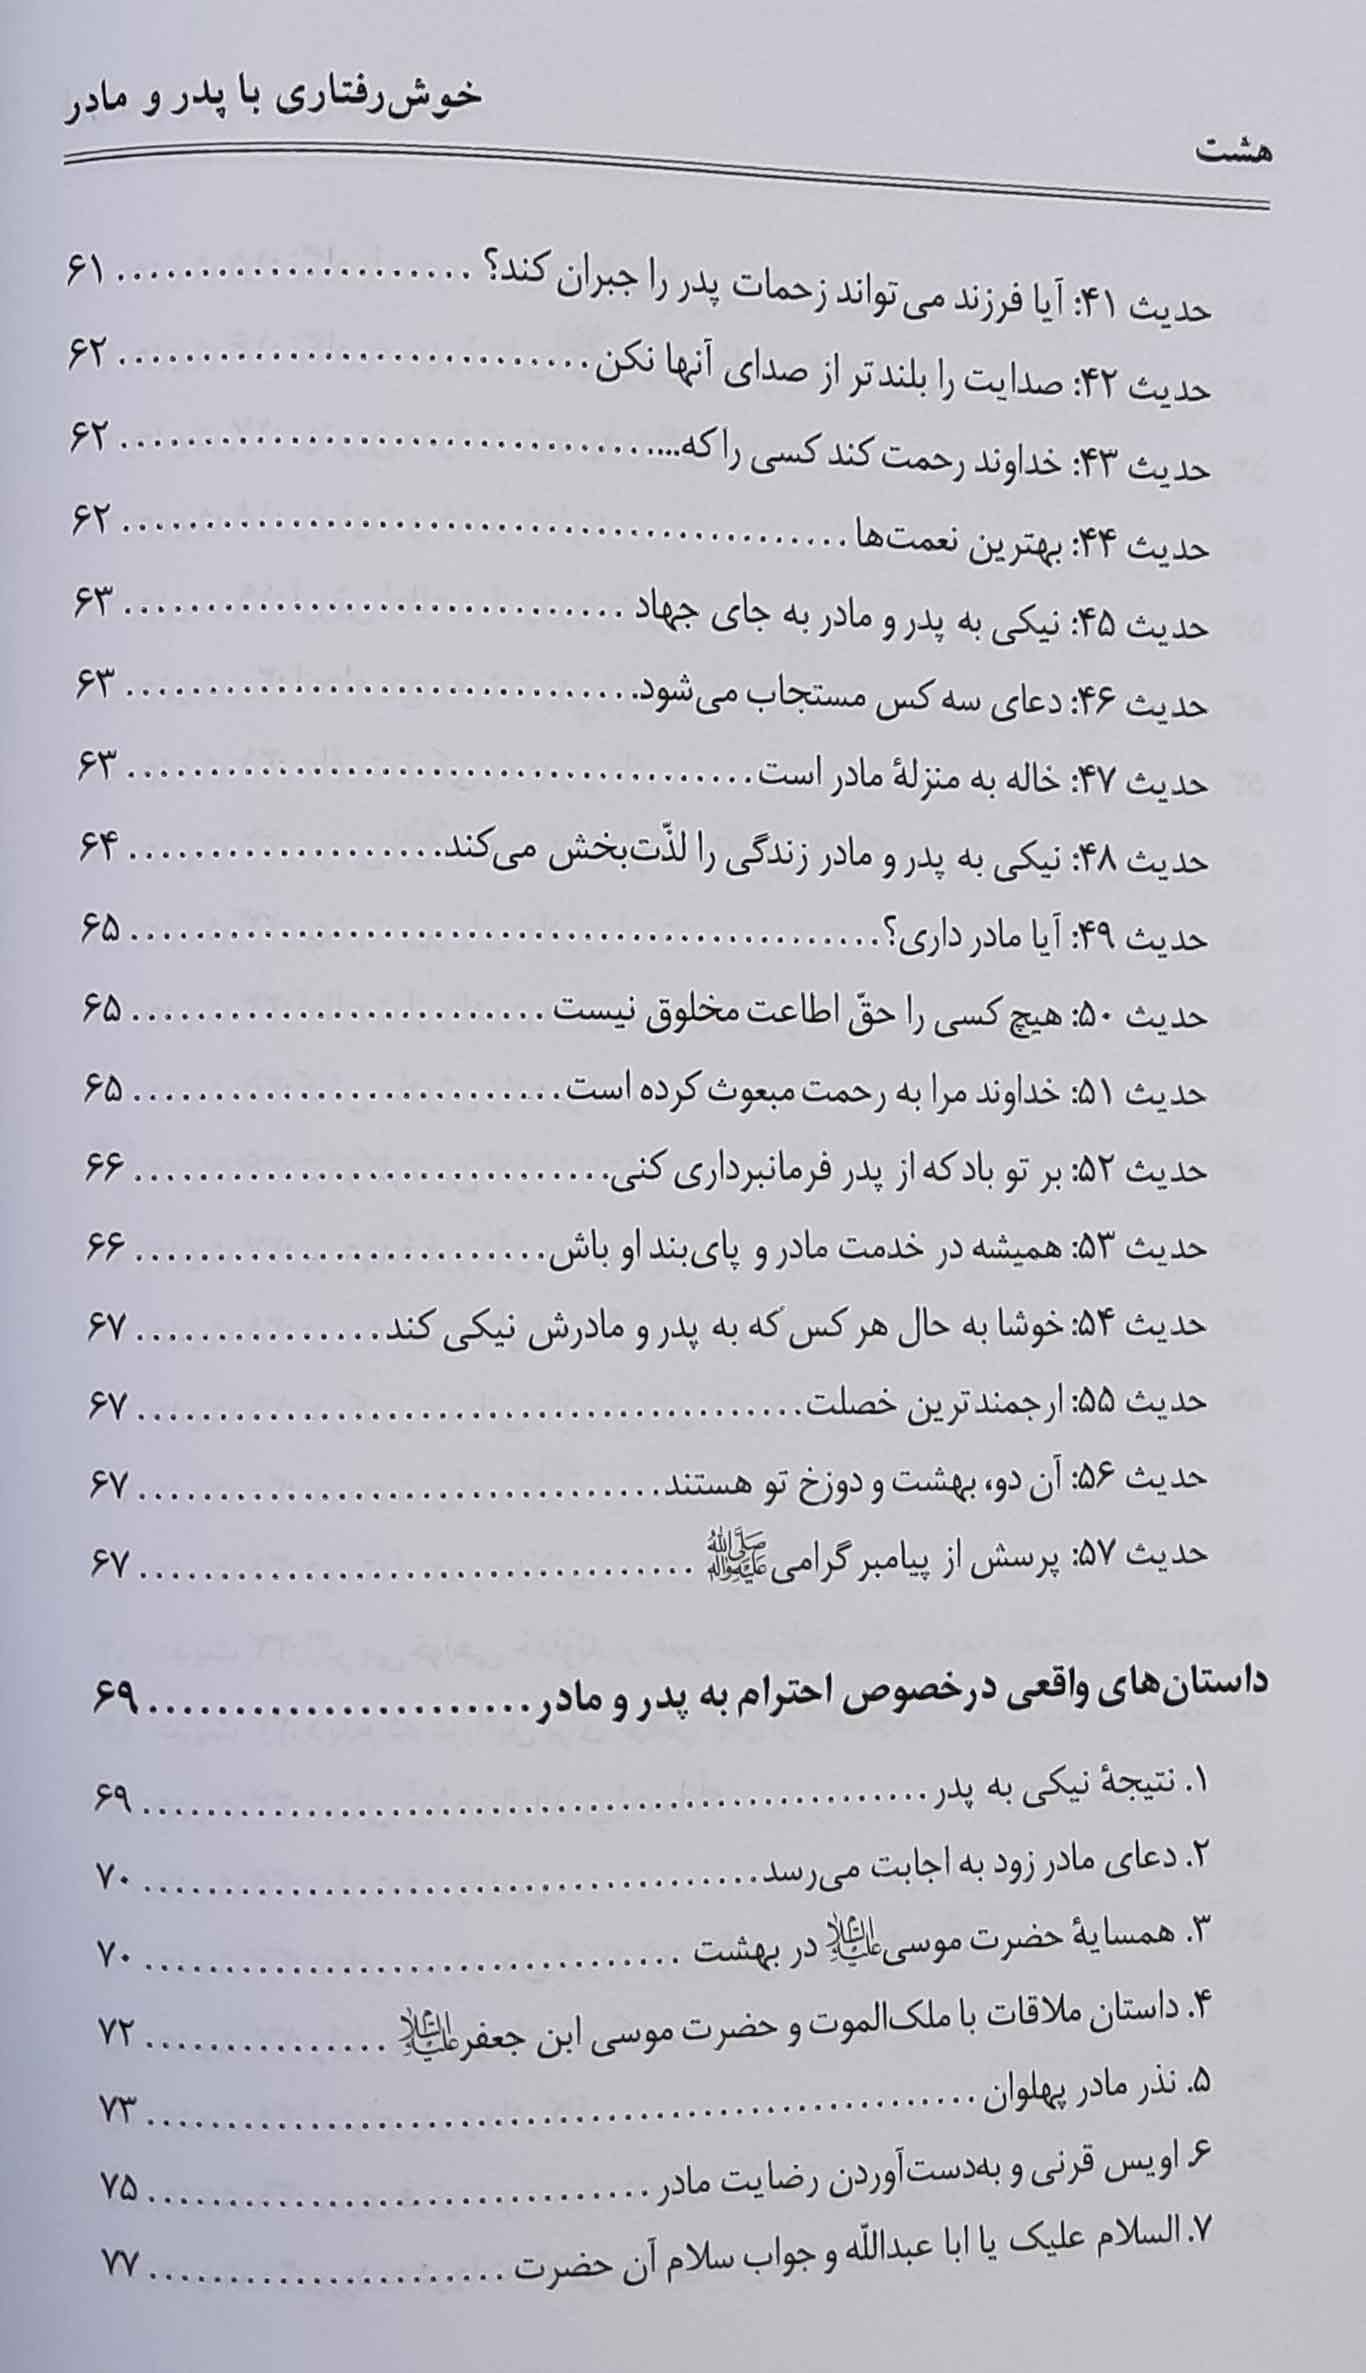 خوش‌رفتاری با پدر و مادر
هشت
حدیث ۴۱: آیا فرزند می‌تواند زحمات پدر را جبران کند؟ ...................... ۶۱
حدیث ۴۲: صدایت را بلندتر از صدای آنها نکن ............................. ۶۲
حدیث ۴۳: خداوند رحمت کند کسی را که.... ............................. ۶۲
حدیث ۴۴: بهترین نعمت‌ها ............................................ ۶۲
حدیث ۴۵: نیکی به پدر و مادر به جای جهاد ............................... ۶۳
حدیث ۴۶: دعای سه کس مستجاب می‌شود ............................... ۶۳
حدیث ۴۷: خاله به منزلهٔ مادر است ...................................... ۶۳
حدیث ۴۸: نیکی به پدر و مادر زندگی را لذّت‌بخش می‌کند .................... ۶۴
حدیث ۴۹: آیا مادر داری؟ .............................................. ۶۵
حدیث ۵۰: هیچ کسی را حقّ اطاعت مخلوق نیست .......................... ۶۵
حدیث ۵۱: خداوند مرا به رحمت مبعوث کرده است .......................... ۶۵
حدیث ۵۲: بر تو باد که از پدر فرمانبرداری کنی ............................. ۶۶
حدیث ۵۳: همیشه در خدمت مادر و پای‌بند او باش ......................... ۶۶
حدیث ۵۴: خوشا به حال هر کس که به پدر و مادرش نیکی کند ............... ۶۷
حدیث ۵۵: ارجمندترین خصلت ......................................... ۶۷
حدیث ۵۶: آن دو، بهشت و دوزخ تو هستند ................................ ۶۷
حدیث ۵۷: پرسش از پیامبر گرامی ﷺ .................................. ۶۷
داستان‌های واقعی درخصوص احترام به پدر و مادر ...................... ۶۹
۱. نتیجهٔ نیکی به پدر ................................................ ۶۹
۲. دعای مادر زود به اجابت می‌رسد ...................................... ۷۰
۳. همسایهٔ حضرت موسی علیه‌السلام در بهشت ................................. ۷۰
۴. داستان ملاقات با ملک‌الموت و حضرت موسی ابن جعفر علیه‌السلام ............... ۷۲
۵. نذر مادر پهلوان ................................................... ۷۳
۶. اویس قرنی و به‌دست‌آوردن رضایت مادر ............................... ۷۵
۷. السلام علیک یا ابا عبداللّه و جواب سلام آن حضرت ...................... ۷۷